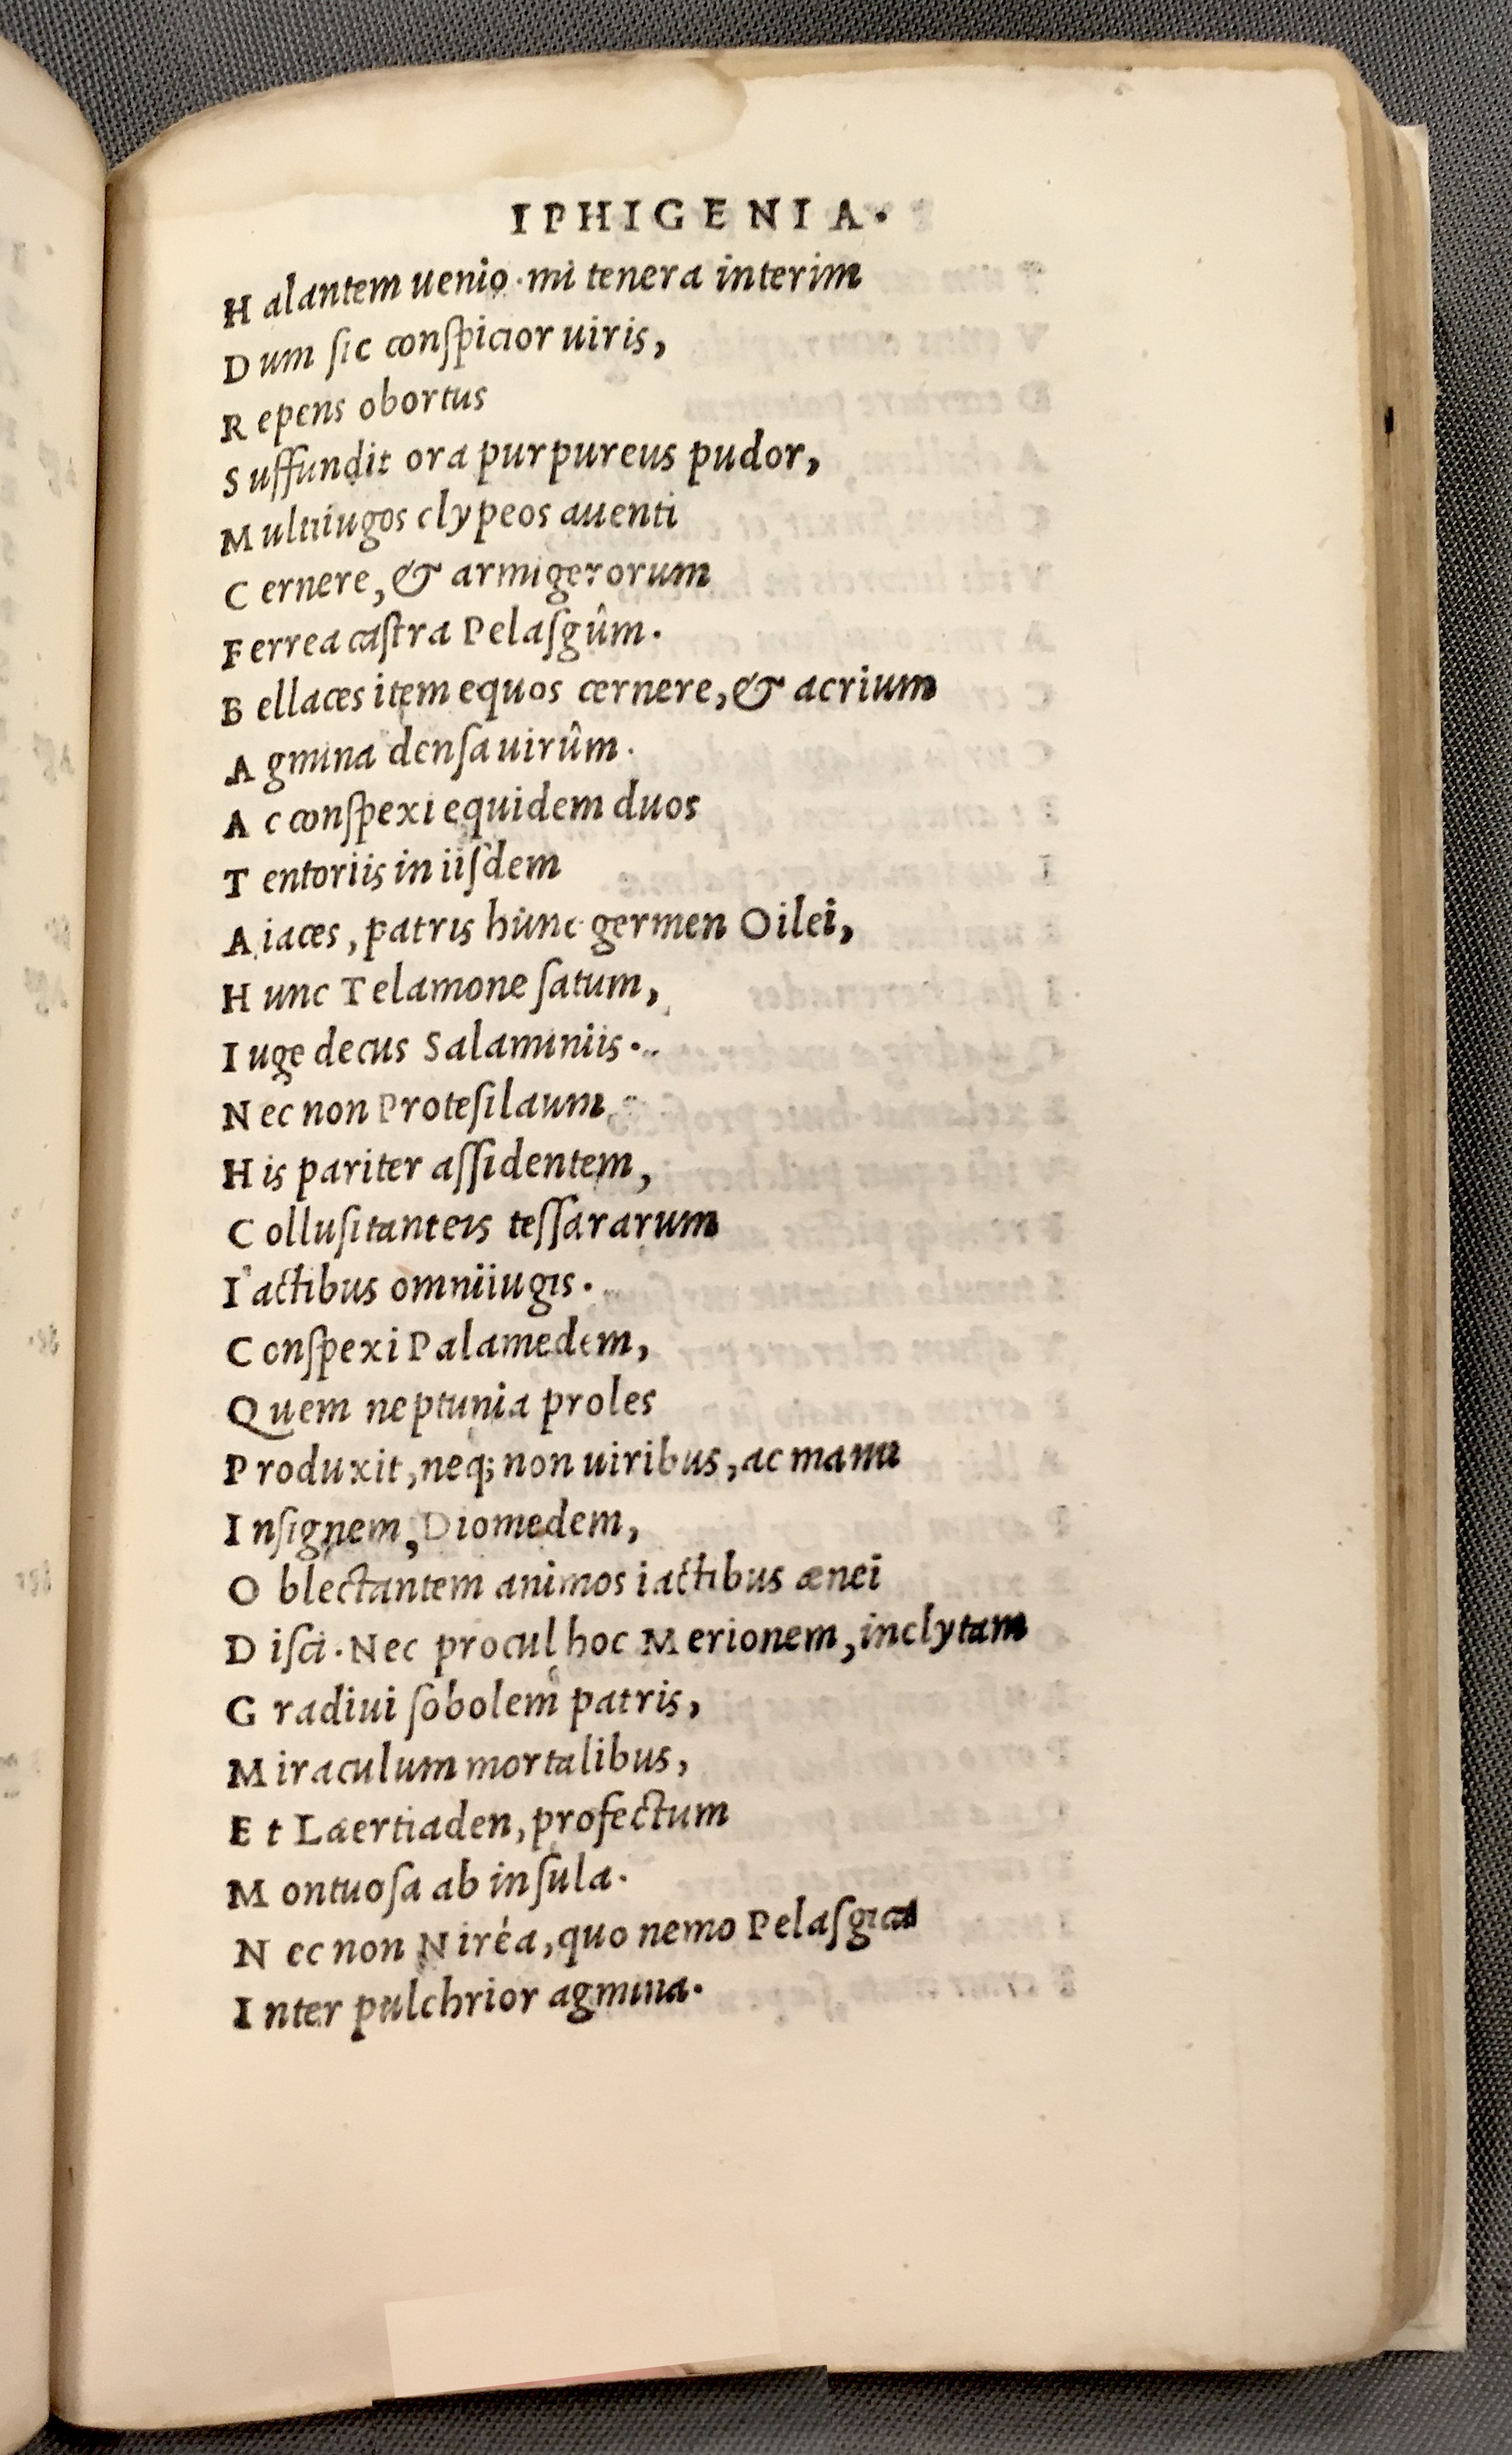 IPHIGENIA.
Halantem uenio. mi tenera interim
Dum ſic conſpicior uiris,
Repens obortus
Suffundit ora purpureus pudor,
Multiiugos clypeos auenti
Cernere, & armigerorum
Ferrea caſtra Pelaſgûm.
Bellaces item equos cernere, & acrium
Agmina denſa uirûm.
Ac conſpexi equidem duos
Tentoriis in iiſdem
Aiaces, patris hunc germen Oilei,
Hunc Telamone ſatum,
Iuge decus Salaminiis.
Nec non Proteſilaum
His pariter aſſidentem,
Colluſitanteis teſſararum
Iactibus omniiugis.
Conſpexi Palamedem,
Quem neptunia proles
Produxit, neq; non uiribus, ac manu
Inſignem, Diomedem,
Oblectantem animos iactibus ænei
Diſci. Nec procul hoc Merionem, inclytam
Gradiui ſobolem patris,
Miraculum mortalibus,
Et Laertiaden, profectum
Montuoſa ab inſula.
Nec non Niréa, quo nemo Pelaſgica
Inter pulchrior agmina.